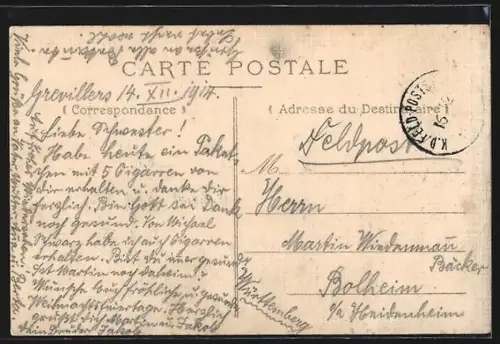 CARTE POSTALE
Grevillers 14. XII. 1914.
( Correspondance )
Liebe Schwester!
Habe heute ein Paket-
chen mit 5 Cigarren von
dir erhalten u. danke dir
herzlich. Bin Gott sei Dank
noch gesund. Von Michael
Schwarz habe ich auch Cigarren
erhalten. Bist du aber gesund?
Ist Martin noch daheim?
Wünsche euch fröhliche u. gesunde
Weihnachtsfeiertage. Herzlich
grüßt dich Martin u. Jakob
dein Bruder Jakob
Adresse du Destinataire )
Feldpost
K.D. FELD-POST
M
Herrn
Martin Wiedenmann
Bäcker
Bolheim
i/a Heidenheim
Württemberg